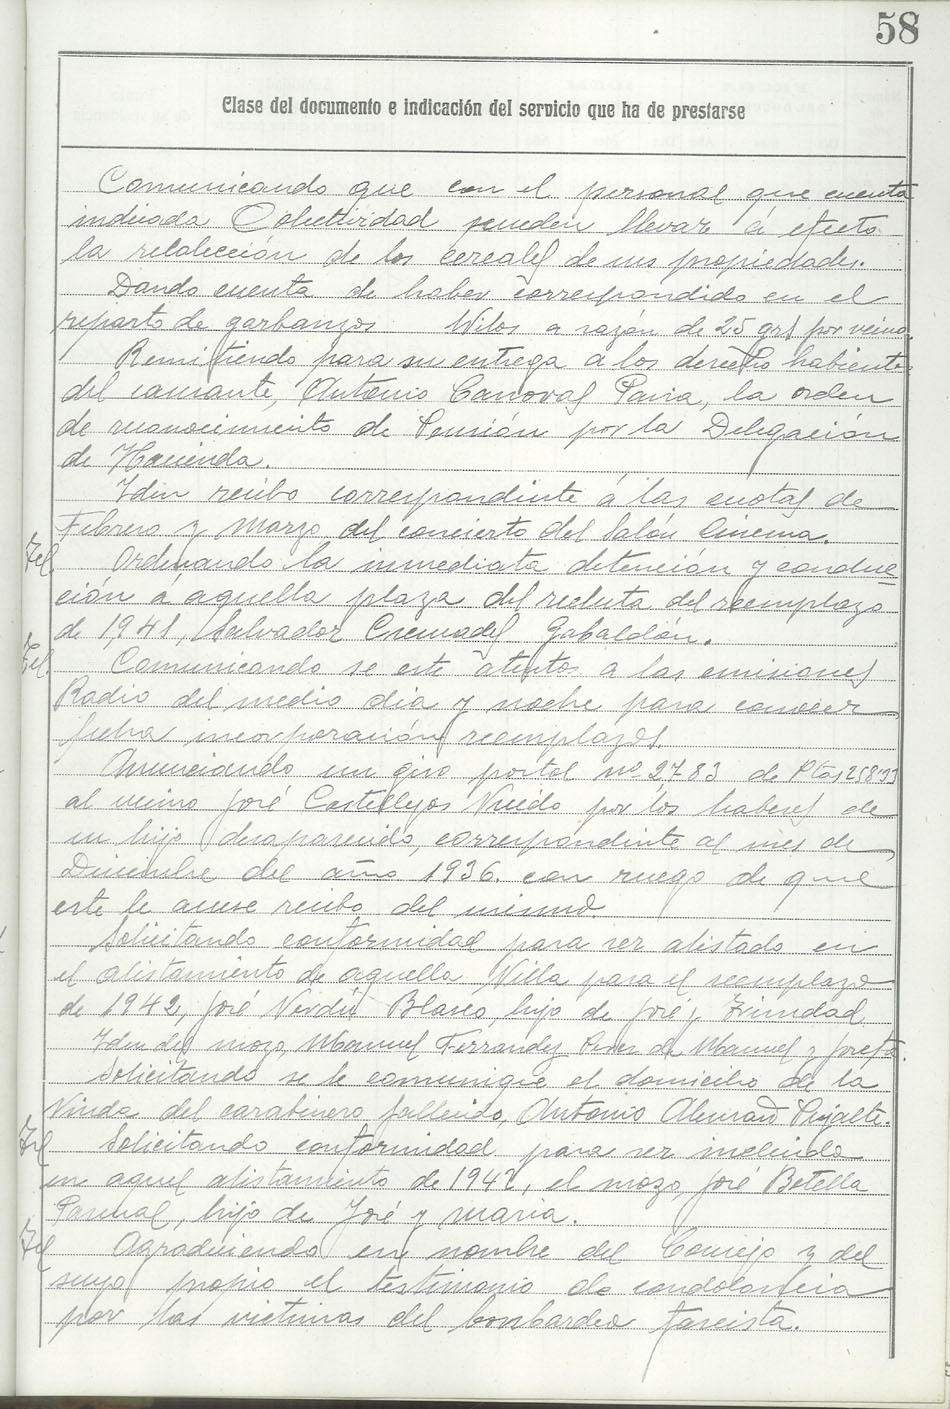 58
Clase del documento e indicación del servicio que ha de prestarse
Comunicando que con el personal que cuenta
indicada Colectividad pueden llevar á efecto
la recolección de los cereales de sus propiedades.
Dando cuenta de haber correspondido en el
reparto de garbanzos Kilos a razón de 25 grs por vecino.
Remitiendo para su entrega a los derecho habientes
del causante, Antonio Canovas Parra, la orden
de reconocimiento de Pensión por la Delegación
de Hacienda.
Idem recibo correspondiente á las cuotas de
Febrero y Marzo del concierto del Salón Cinema.
Tel. Ordenando la inmediata detención y conduc
ción á aquella plaza del recluta del reemplazo
de 1941, Salvador Cremades Gabaldón.
Tel. Comunicando se esté atentos a las emisiones
Radio del medio dia y noche para conocer
fecha incorporación reemplazos.
Anunciando un giro postal nº 2783 de Ptas
al vecino José Castellejos Vicedo por los haberes de
su hijo desaparecido, correspondiente al mes de
Diciembre del año 1936. con ruego de que
este le acuse recibo del mismo.
Solicitando conformidad para ser alistado en
el alistamiento de aquella Villa para el reemplazo
de 1942, José Verdú Blasco, hijo de José y Trinidad
Idem del mozo, Manuel Ferrandez de Manuel y Josefa.
Solicitando se le comunique el domicilio de la
Viuda del carabinero fallecido, Antonio Alemañ Pujalte.
Tel Solicitando conformidad para ser incluido
en aquel alistamiento de 1942, el mozo José Botella
Pascual, hijo de José y Maria.
Tel Agradeciendo en nombre del Consejo y del
suyo propio el testimonio de condolencia
por las victimas del bombardeo fascista.